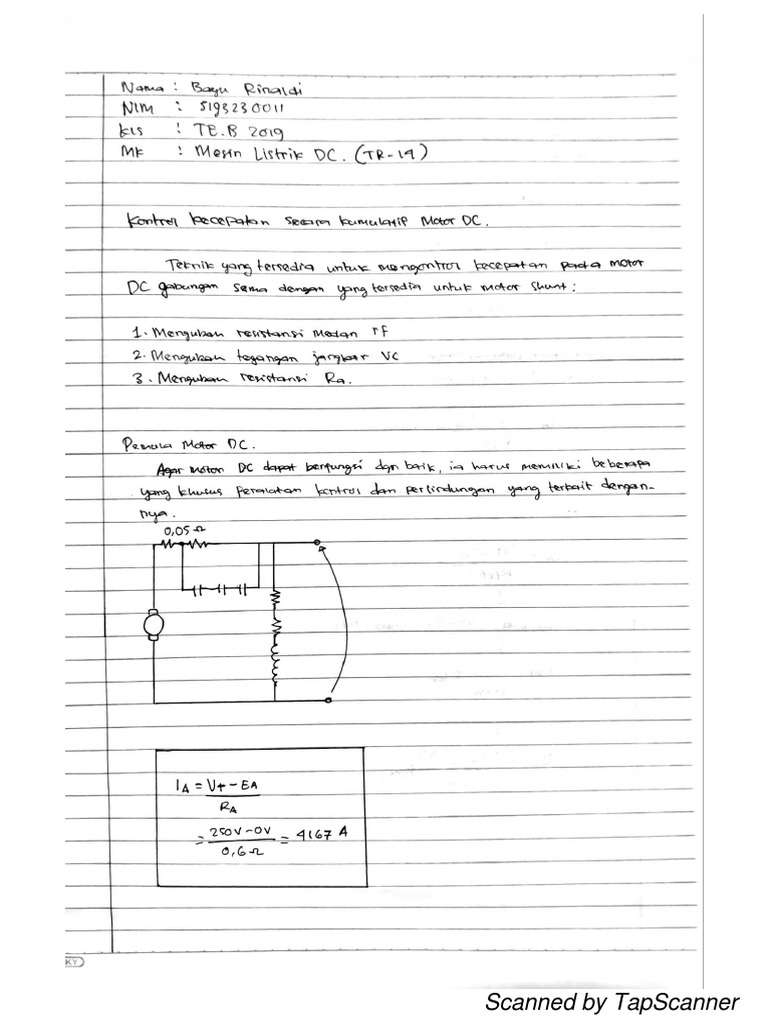 Nama : Bayu Rinaldi
NIM : 5193230011
Kls : TE.B 2019
MK : Mesin Listrik DC. (TR-19)
Kontrol kecepatan secara kumulatif Motor DC.
Teknik yang tersedia untuk mengontrol kecepatan pada motor
DC gabungan sama dengan yang tersedia untuk motor shunt :
1. Mengubah resistansi medan rf
2. Mengubah tegangan jangkar VC
3. Mengubah resistansi Ra.
Pemula Motor DC.
Agar motor DC dapat berfungsi dgn baik, ia harus memiliki beberapa
yang khusus peralatan kontrol dan perlindungan yang terkait dengan-
nya.
0,05 Ω
IA = Vt - EA
RA
= 250V - 0V = 4167 A
0,6 Ω
KY
Scanned by TapScanner